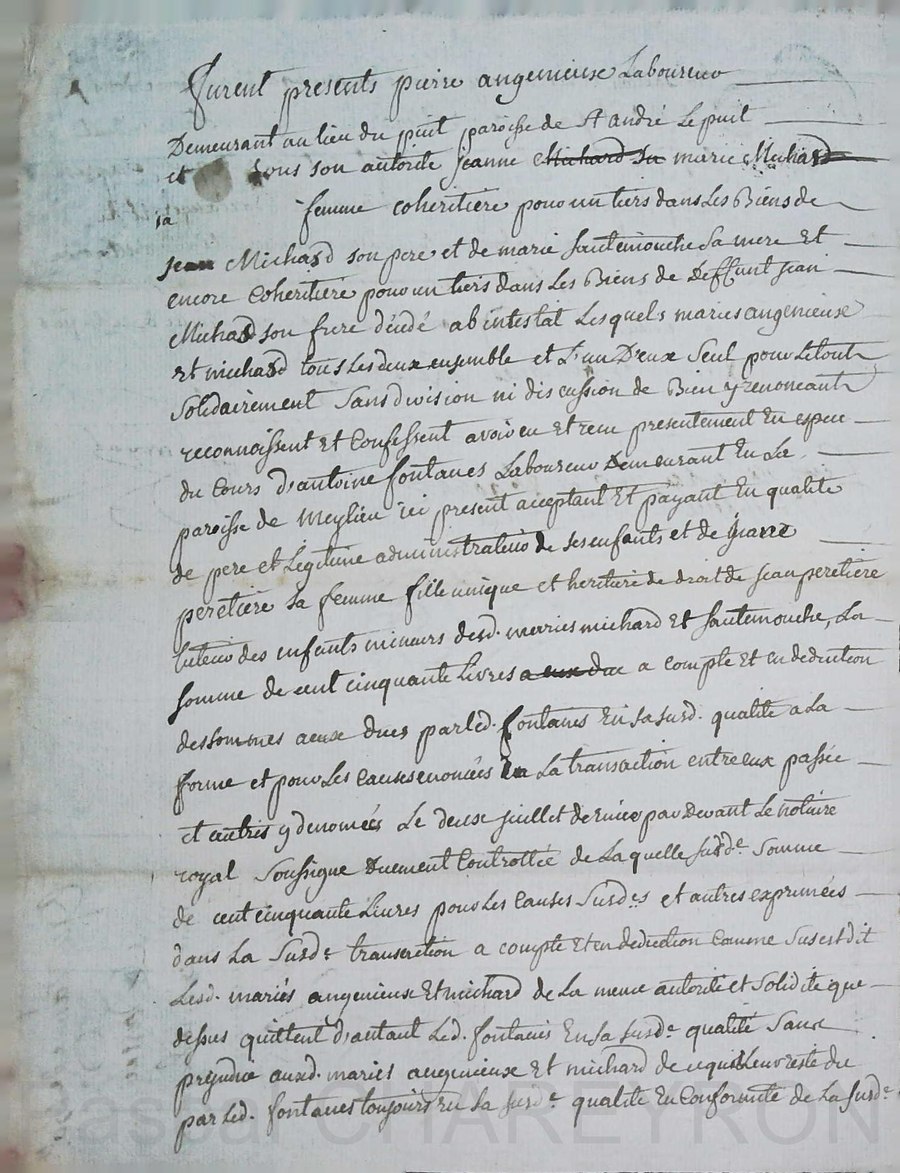 furent presents pierre angenieuse Laboureur
Demeurant au lieu du puit paroisse de St andré Le puit
et sous son autorité jeanne Michard su marie Michard
sa femme coheritiere pour un tiers dans Les Biens de
jean Michard son pere et de marie sautemouche sa mere Et
encore Coheritiere pour un tiers dans Les Biens de Deffunt jean
Michard son frere décédé ab intestat Lesquels maries angenieuse
Et michard tous Les deux ensemble et L'un D'eux seul pour Letout
solidairement sans division ni discussion de Bien y renonceant
reconnoissent et Confessent avoir eu et recu presentement En espece
du Cours d'antoine fontanes Laboureur Demeurant En La
paroisse de Meylieu ici present acceptant Et payant En qualité
de pere et Legitime administrateur de ses enfants et de jeanne
peretiere sa femme fille unique et heritiere de droit de jean peretiere
tuteur des enfants mineurs desd. maries michard et sautemouche, La
somme de cent cinquante Livres a eux due a compte et en deduction
des sommes a eux dues par Led. fontanes En sa susd. qualité a La
forme et pour Les causes enoncées En La transaction entre eux passée
et autres y denomés Le deux juillet dernier par Devant Le notaire
royal soussigné Duement Controllée de La quelle susde. somme
de cent cinquante Livres pour Les Causes susdes et autres exprimées
dans La susde transaction a compte Et en deduction Comme sus est dit
Lesd. mariés angenieuse Et michard de La meme autorité et solidité que
dessus quittent d'autant Led. fontanes En sa susde qualité sans
prejudice auxd. maries angenieuse Et michard de ce qui Leur reste du
par Led. fontanes toujours En sa susde qualité En Conformité de La susde
CHAREYRON